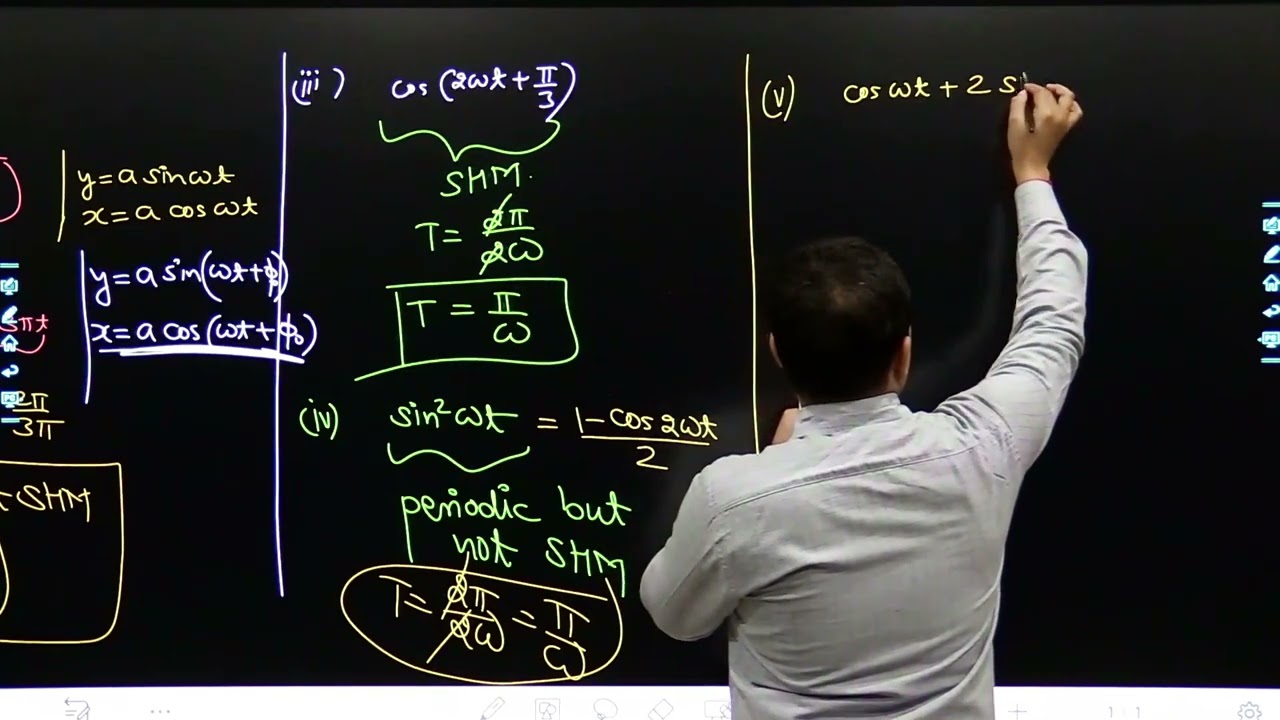 y = a sinωt
x = a cosωt
y = a sin(ωt+ϕ₀)
x = a cos(ωt+ϕ₀)
πt
2π
3π
SHM
(iii) cos(2ωt + π/3)
SHM.
T = 2π/2ω
T = π/ω
(iv) sin²ωt = 1-cos2ωt/2
periodic but
not SHM
T = 2π/2ω = π/ω
(v) cosωt + 2 s
1 : 1